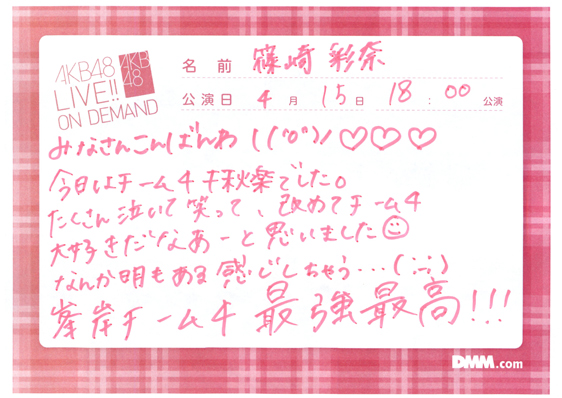 AKB48
LIVE!!
ON DEMAND
AKB
48
名前 篠崎 彩奈
公演日 4月 15日 18:00 公演
みなさんこんばんわ\(^o^)/♡♡♡
今日はチーム4千秋楽でした。
たくさん泣いて笑って、改めてチーム4
大好きだなあーと思いました☺
なんか明もある感じしちゃう…(;_;)
峯岸チーム4最強最高!!!
DMM.com